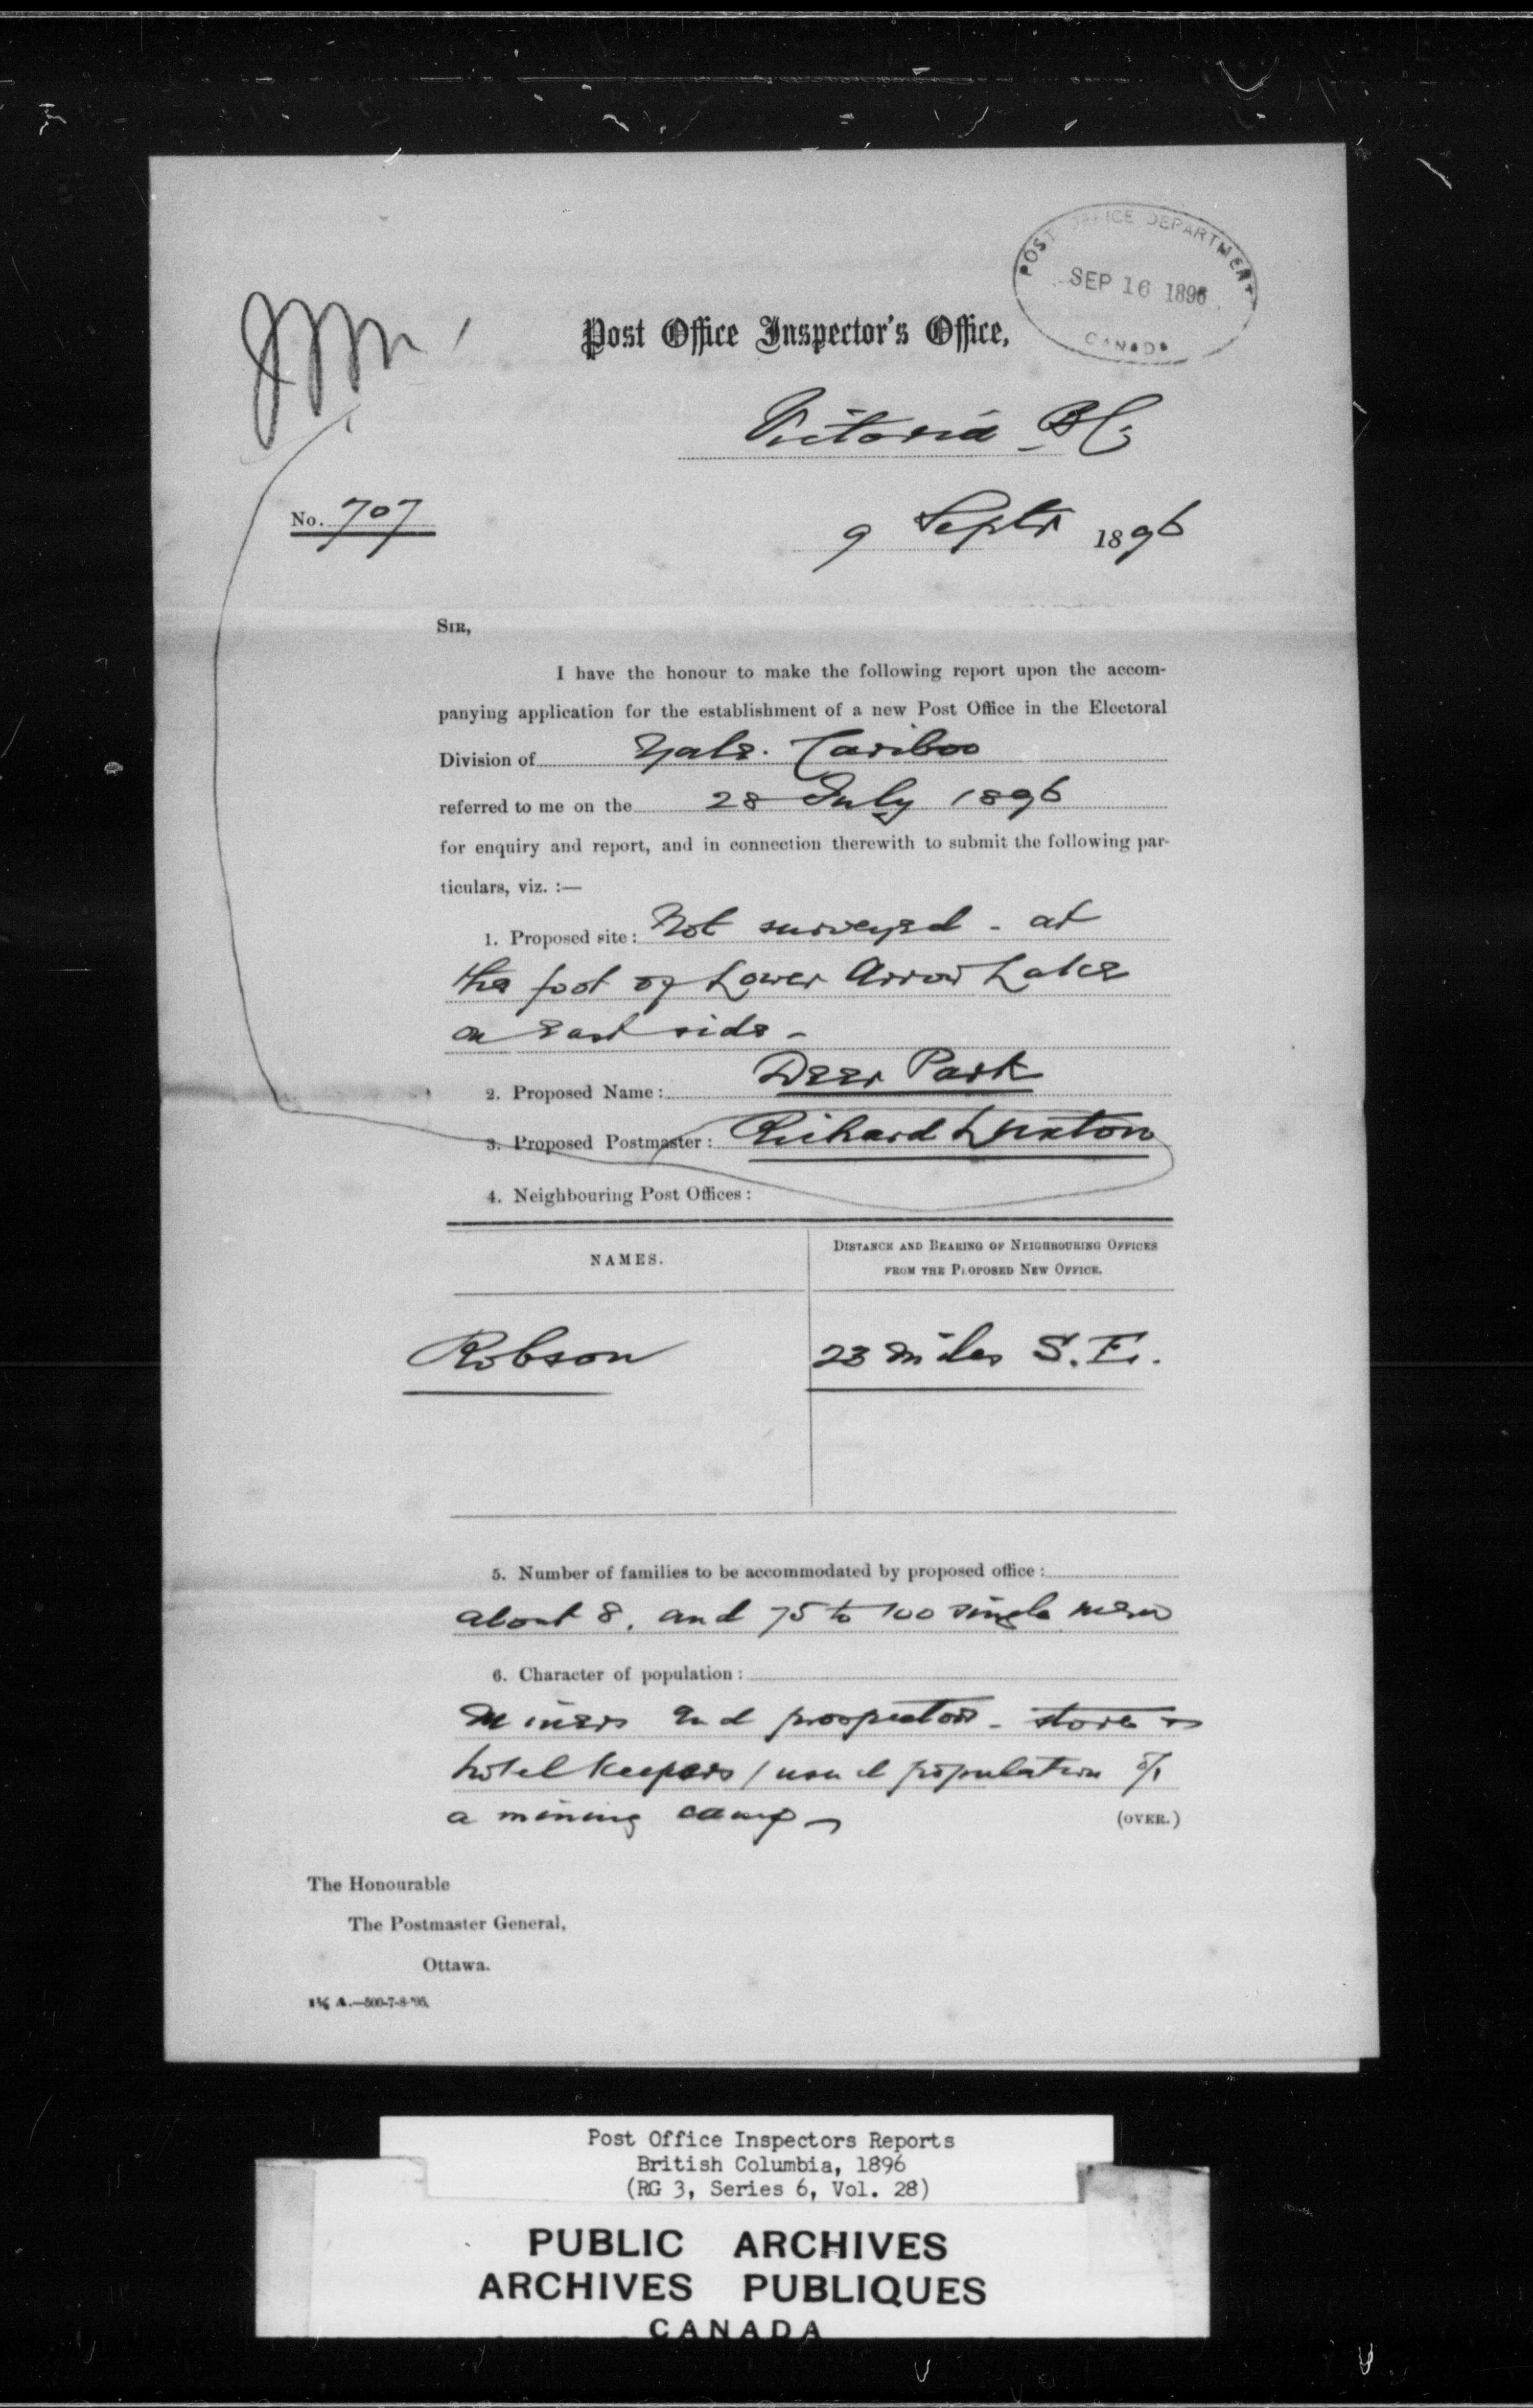 POST OFFICE DEPARTMENT
SEP 16 1896
CANADA
Post Office Inspector's Office,
Victoria B C
No. 707
9 Septr 1896
SIR,
I have the honour to make the following report upon the accom-
panying application for the establishment of a new Post Office in the Electoral
Division of Yale. Cariboo
referred to me on the 28 July 1896
for enquiry and report, and in connection therewith to submit the following par-
ticulars, viz. :—
1. Proposed site: Not surveyed - at
the foot of Lower Arrow Lake
on East side -
2. Proposed Name: Deer Park
3. Proposed Postmaster: Richard
4. Neighbouring Post Offices:
NAMES.
DISTANCE AND BEARING OF NEIGHBOURING OFFICES
FROM THE PROPOSED NEW OFFICE.
Robson 23 miles S.E.
5. Number of families to be accommodated by proposed office:
about 8, and 75 to 100 single men
6. Character of population:
Miners and prospectors - store &
hotel keepers / usual population of
a mining camp -
(OVER.)
The Honourable
The Postmaster General,
Ottawa.
Post Office Inspectors Reports
British Columbia, 1896
(RG 3, Series 6, Vol. 28)
PUBLIC ARCHIVES
ARCHIVES PUBLIQUES
CANADA